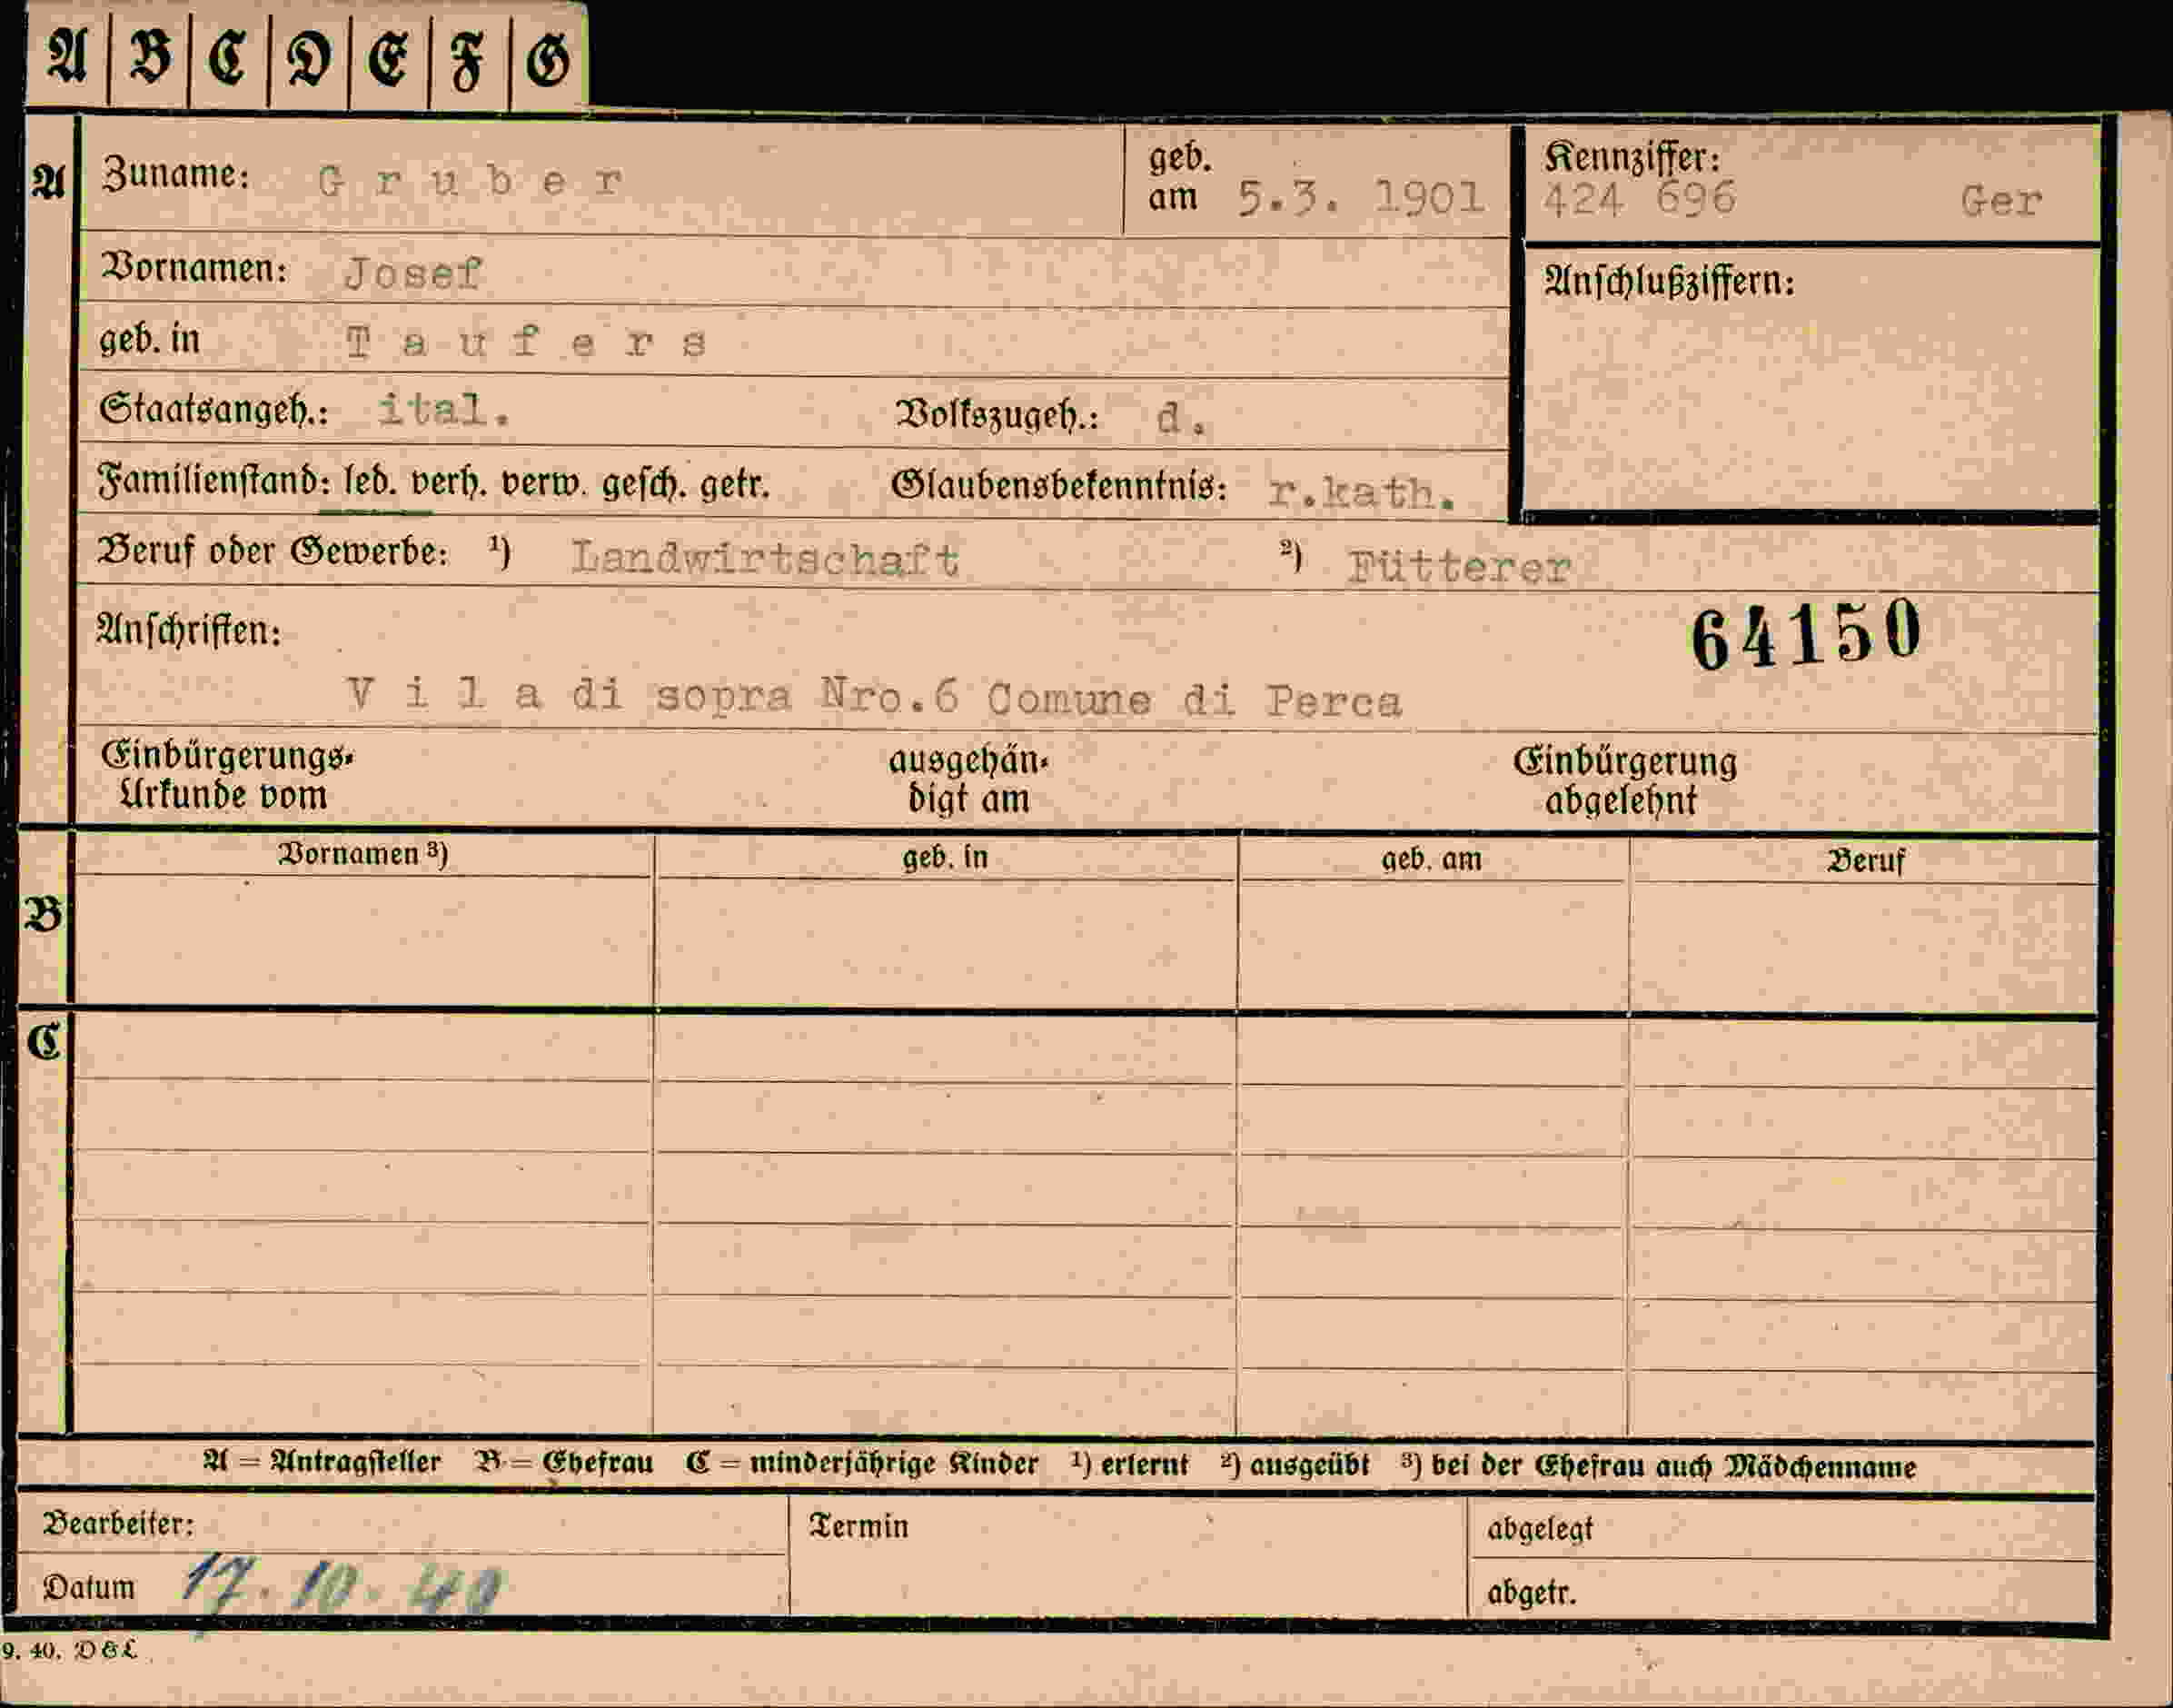 A B C D E F G
A Zuname: Gruber geb. am 5.3. 1901 Kennziffer: 424 696 Ger
Vornamen: Josef Anschlußziffern:
geb. in Taufers
Staatsangeh.: ital. Volkszugeh.: d.
Familienstand: led. verh. verw. gesch. getr. Glaubensbekenntnis: r.kath.
Beruf oder Gewerbe: ¹) Landwirtschaft ²) Fütterer
Anschriften: 64150
V i l a di sopra Nro.6 Comune di Perca
Einbürgerungs- ausgehän- Einbürgerung
Urkunde vom digt am abgelehnt
Vornamen ³) geb. in geb. am Beruf
B
C
A = Antragsteller B = Ehefrau C = minderjährige Kinder ¹) erlernt ²) ausgeübt ³) bei der Ehefrau auch Mädchenname
Bearbeiter: Termin abgelegt
Datum 17.10.40 abgetr.
9. 40. DGL